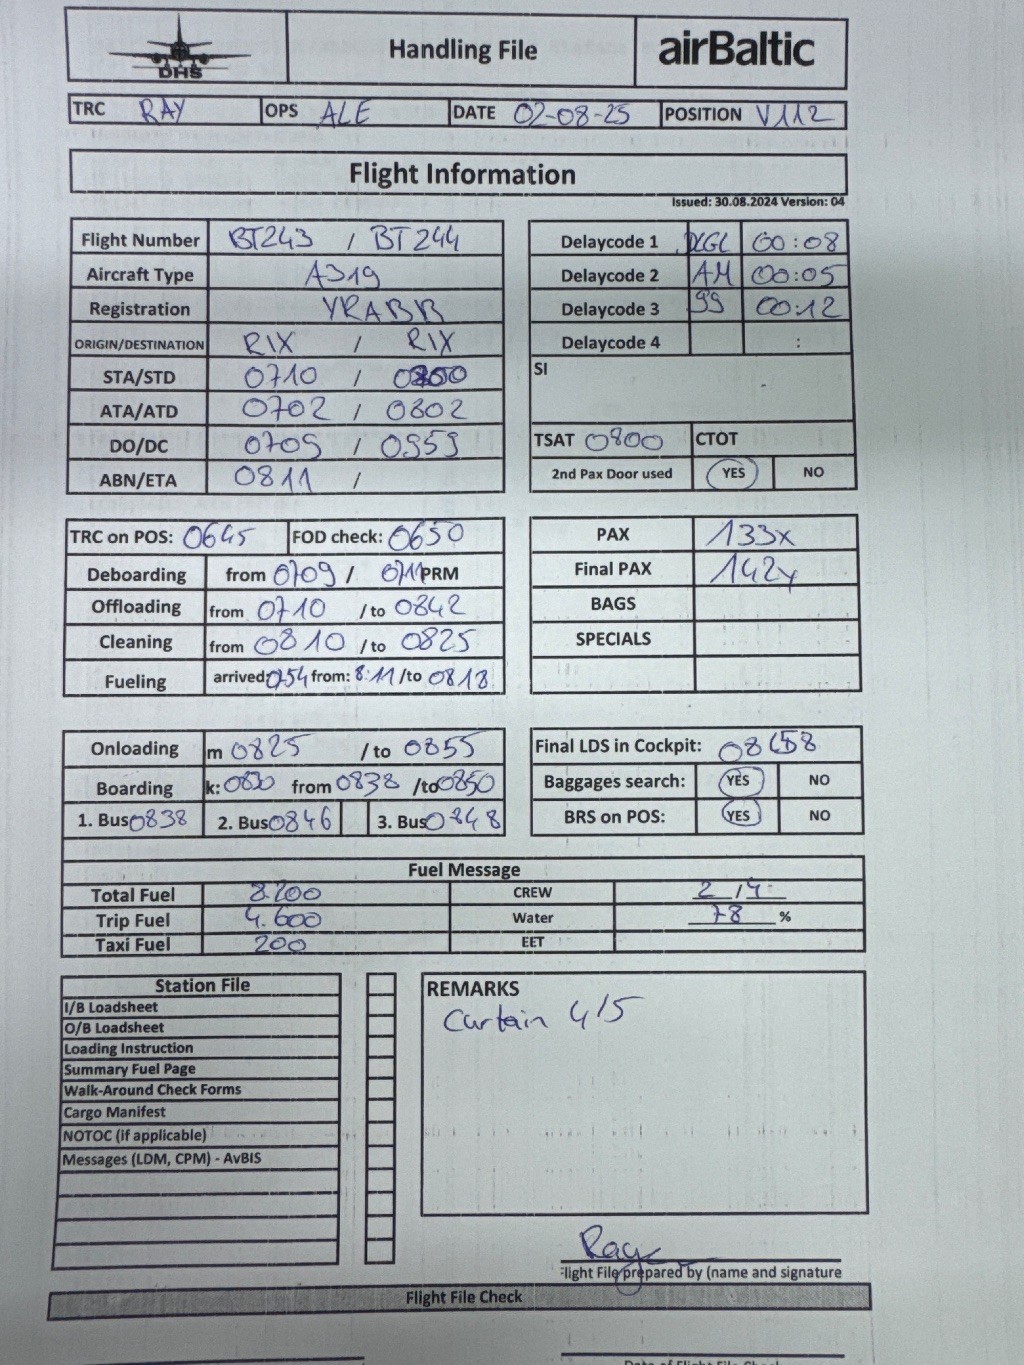 DHS Handling File airBaltic
TRC RAY OPS ALE DATE 02-08-25 POSITION V112
Flight Information
Issued: 30.08.2024 Version: 04
Flight Number BT243 / BT244
Aircraft Type A319
Registration YRABB
ORIGIN/DESTINATION RIX / RIX
STA/STD 0710 /
ATA/ATD 0702 / 0802
DO/DC 0709 / 0959
ABN/ETA 0811 /
Delaycode 1 00:08
Delaycode 2 AM 00:05
Delaycode 3 99 00:12
Delaycode 4 :
SI
TSAT 0800 CTOT
2nd Pax Door used YES NO
TRC on POS: 0645 FOD check: 0650
Deboarding from 0709 / 0711 PRM
Offloading from 0710 / to 0842
Cleaning from 0810 / to 0825
Fueling arrived: 0754 from: 8:11 /to 0818
PAX 133x
Final PAX 142y
BAGS
SPECIALS
Onloading m 0825 / to 0855
Boarding k: 0830 from 0838 /to 0850
1. Bus 0838 2. Bus 0846 3. Bus 0848
Final LDS in Cockpit: 08 58
Baggages search: YES NO
BRS on POS: YES NO
Fuel Message
Total Fuel 8.200 CREW 2 / 4
Trip Fuel 4.600 Water 78 %
Taxi Fuel 200 EET
Station File
I/B Loadsheet
O/B Loadsheet
Loading Instruction
Summary Fuel Page
Walk-Around Check Forms
Cargo Manifest
NOTOC (if applicable)
Messages (LDM, CPM) - AvBIS
REMARKS
Curtain 4/5
Ray
light File prepared by (name and signature
Flight File Check